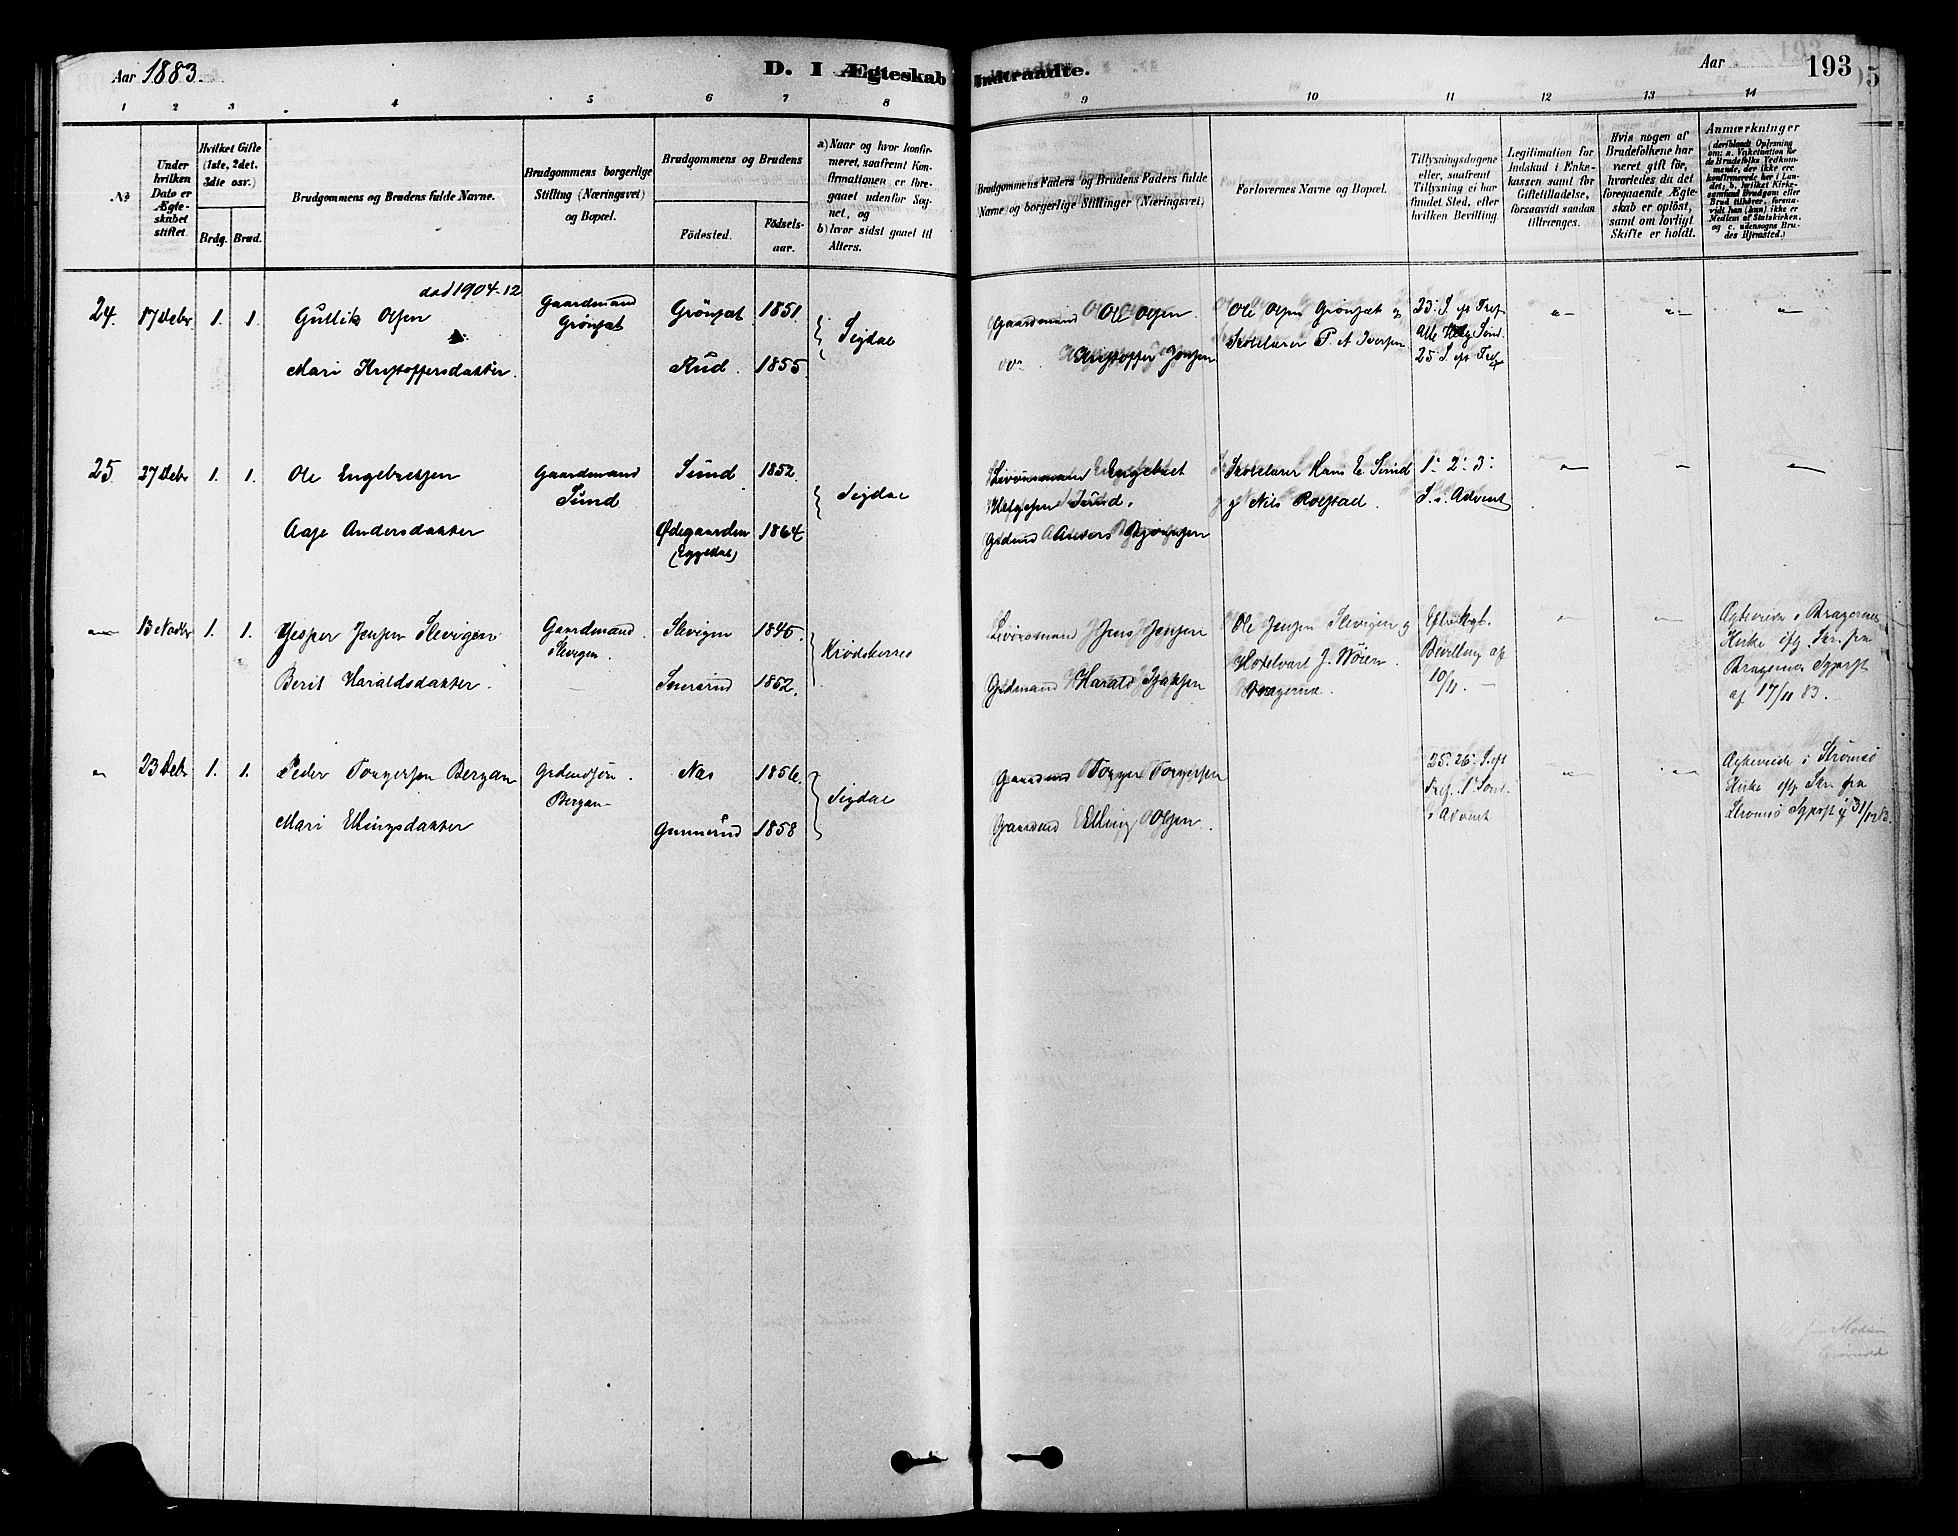 Aar 1883. D. I Ægteskab Indtraadte. Aar 193
1 2 3 4 5 6 7 8 9 10 11 12 13 14
№
Under hvilken Dato er Ægteskabet stiftet.
Hvilket Gifte (1ste, 2det, 3die osv.)
Brdg. Brud.
Brudgommens og Brudens fulde Navne.
Brudgommens borgerlige Stilling (Næringsvei) og Bopæl.
Brudgommens og Brudens
Födested. Födselsaar.
a) Naar og hvor konfirmeret, saafremt Konfirmationen er foregaaet udenfor Sognet, og
b) hvor sidst gaaet til Alters.
Brudgommens Faders og Brudens Faders fulde Navne og borgerlige Stillinger (Næringsvei)
Forlovernes Navne og Bopæl.
Tillysningsdagene eller, saafremt Tillysning ei har fundet Sted, efter hvilken Bevilling.
Legitimation for Indskud i Enkekassen samt for Giftetilladelse, forsaavidt saadan tiltrænges.
Hvis nogen af Brudefolkene har været gift för, hvorledes da det foregaaende Ægteskab er oplöst, samt om lovligt Skifte er holdt.
Anmærkninger
24. 17 Debr 1. 1. Gullik Olsen död 1904-12 Gaardmand Grönset Grönset 1851. Sigdal Gaardmand Ole Olsen Ole Olsen Grönset og 23. S. eft Tref
Mari Kristoffersdatter. Rud. 1855 do Kristoffer Jensen Skolelærer P. A Iversen Alle Helg Sönd. 25 S eft Tref
25. 27 Debr 1. 1. Ole Engebretsen Gaardmand Sund Sund 1852. Sigdal Livöresmand Engebret Helgesen Sund. Skolelærer Hans E Sund og Nils Rolstad. 1. 2. 3. S. i Advent
Aase Andersdatter Ödegaarden (Eggedal) 1864 Gdmd Anders Björnsen
13 Novbr 1. 1. Jesper Jensen Slevigen Gaardmand. Slevigen. Slevigen 1845. Krödsherred Livöresmand Jens Jensen Ole Jensen Slevigen og Hotelvært J. Wöien Bragernes. Bevilling af 10/11. Ægteviede i Bragernes Kirke iflg Skr. fra Bragernes Sgprst af 17/11 83.
Berit Haraldsdatter. 1852. Gdmand Harald Isaksen
23 Debr 1. 1. Peder Torgersen Bergan Gdmdsön. Bergan Næs 1856. Sigdal Gaardmd Torger Torgersen 25. 26. S eft Tref. 1. Sönd. i Advent Ægteviede i Strömsö Kirke iflg Skr fra Strömsö Sgprst af 31/12 83.
Mari Ellingsdatter Gunnerud 1858 Gaardmd Elling Olsen.